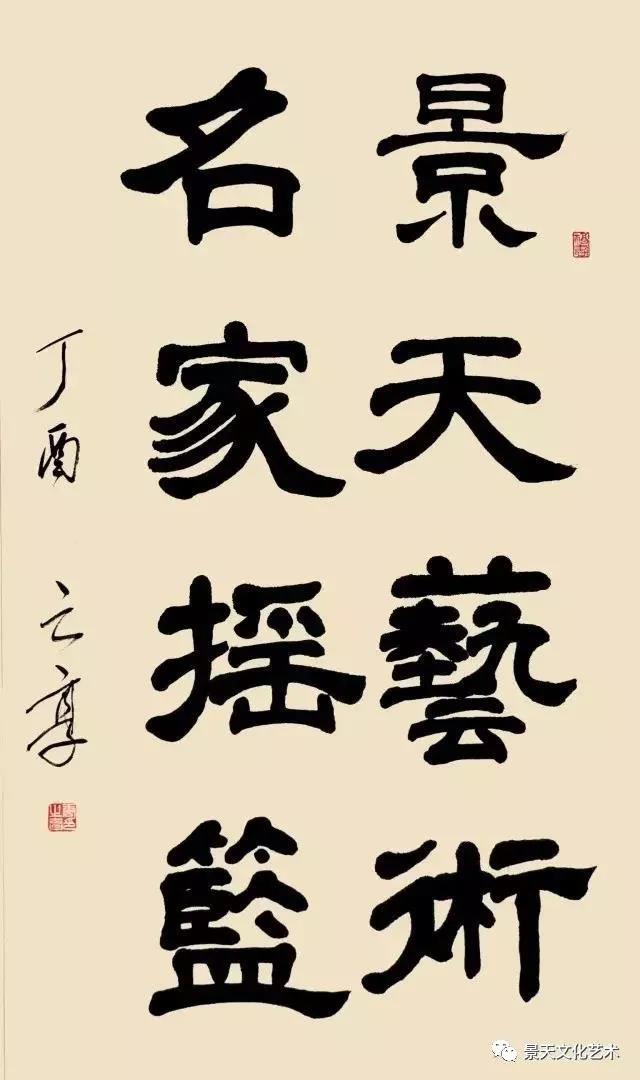 景天藝術
名家摇籃
丁酉 云亭
景天文化艺术